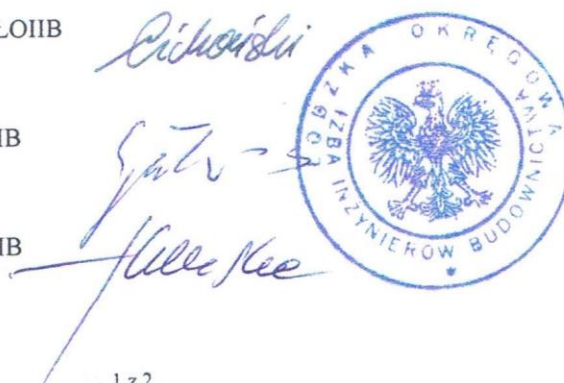 ŁOIIB
Cichoński
IIB
IIB
ŁÓDZKA OKRĘGOWA
IZBA INŻYNIERÓW BUDOWNICTWA
1 z 2